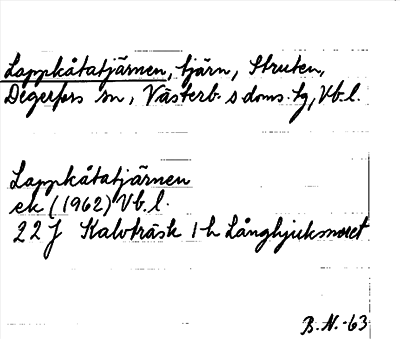 Lappkåtatjärnen, tjärn, Struten,
Degerfors sn, Västerb. s doms. tg, Vb. l.
Lappkåtatjärnen
ek (1962) Vb. l.
22 J Kalvträsk 1 h
B. N. -63